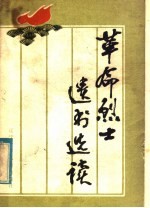 革命烈士
遗书选读